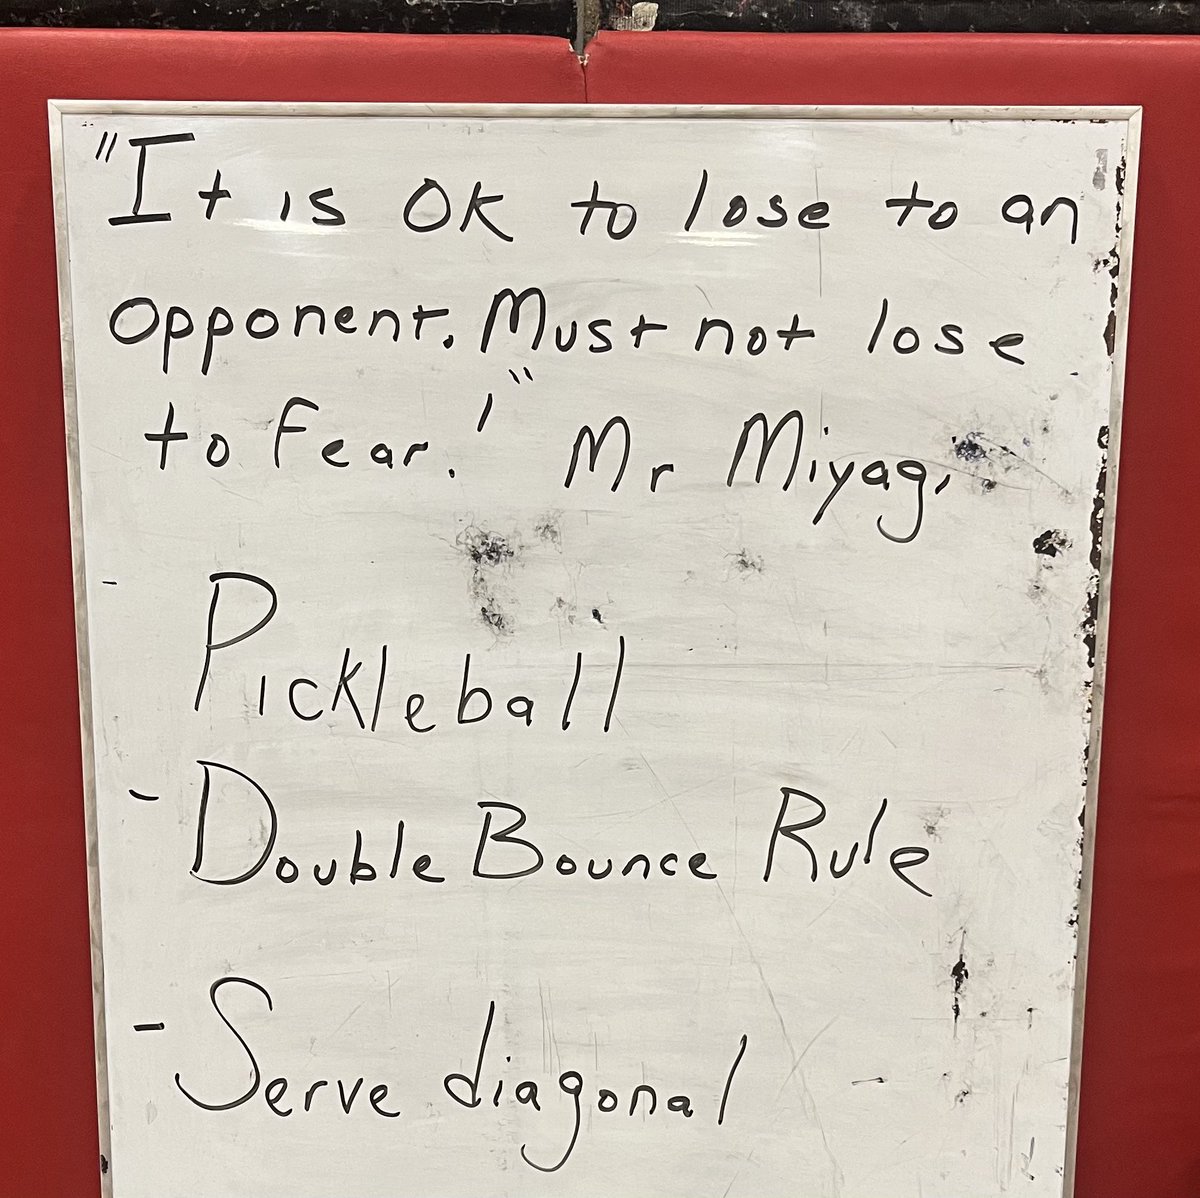 "It is OK to lose to an
opponent. Must not lose
to fear.'" Mr Miyagi
- Pickleball
- Double Bounce Rule
- Serve diagonal